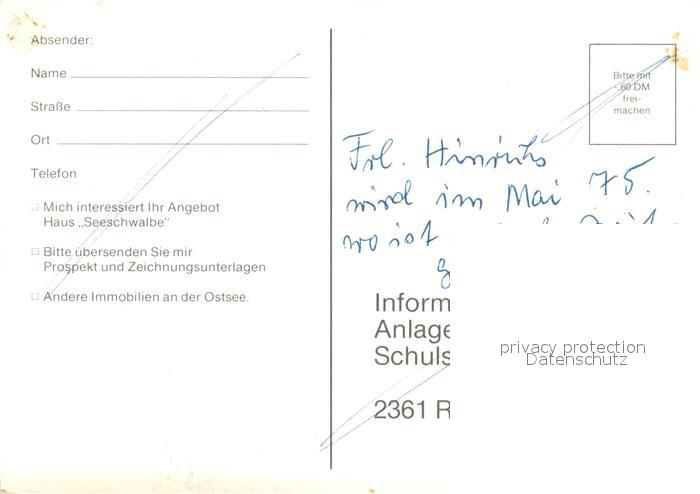 Absender:
Name
Straße
Ort
Telefon
Mich interessiert Ihr Angebot
Haus „Seeschwalbe“
Bitte übersenden Sie mir
Prospekt und Zeichnungsunterlagen
Andere Immobilien an der Ostsee.
Bitte mit
-.60 DM
frei-
machen
Frl. Hinrichs
wird im Mai 75.
wo ist
Inform
Anlage
Schuls
2361 R
privacy protection
Datenschutz